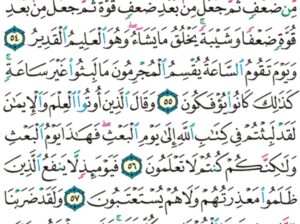 مِّن ضَعْفٍ ثُمَّ جَعَلَ مِنۢ بَعْدِ ضَعْفٍ قُوَّةً ثُمَّ جَعَلَ مِنۢ بَعْدِ
قُوَّةٍ ضَعْفًا وَشَيْبَةً ۚ يَخْلُقُ مَا يَشَآءُ ۖ وَهُوَ ٱلْعَلِيمُ ٱلْقَدِيرُ ٥٤
وَيَوْمَ تَقُومُ ٱلسَّاعَةُ يُقْسِمُ ٱلْمُجْرِمُونَ مَا لَبِثُوا۟ غَيْرَ سَاعَةٍ ۚ
كَذَٰلِكَ كَانُوا۟ يُؤْفَكُونَ ٥٥ وَقَالَ ٱلَّذِينَ أُوتُوا۟ ٱلْعِلْمَ وَٱلْإِيمَٰنَ
لَقَدْ لَبِثْتُمْ فِى كِتَٰبِ ٱللَّهِ إِلَىٰ يَوْمِ ٱلْبَعْثِ ۖ فَهَٰذَا يَوْمُ ٱلْبَعْثِ
وَلَٰكِنَّكُمْ كُنتُمْ لَا تَعْلَمُونَ ٥٦ فَيَوْمَئِذٍ لَّا يَنفَعُ ٱلَّذِينَ
ظَلَمُوا۟ مَعْذِرَتُهُمْ وَلَا هُمْ يُسْتَعْتَبُونَ ٥٧ وَلَقَدْ ضَرَبْنَا